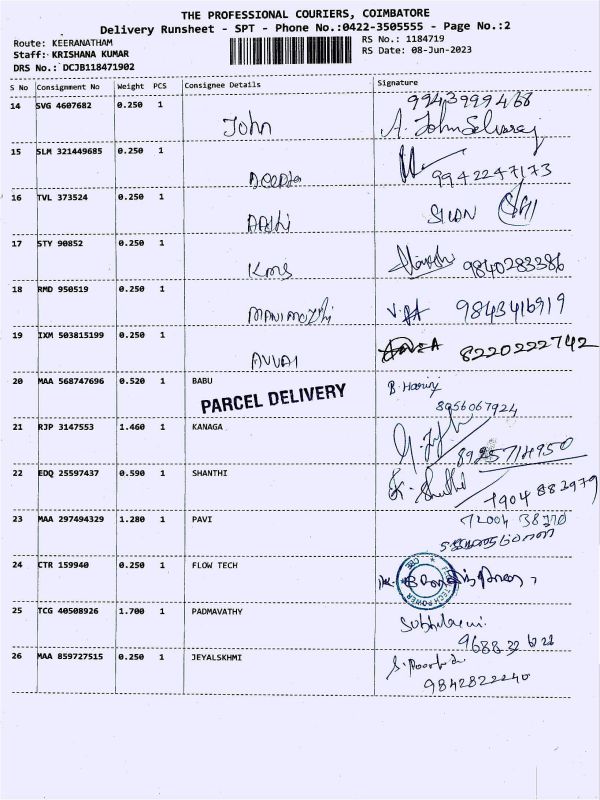 THE PROFESSIONAL COURIERS, COIMBATORE
Delivery Runsheet - SPT - Phone No.:0422-3505555 - Page No.:2
Route: KEERANATHAM RS No.: 1184719
Staff: KRISHANA KUMAR RS Date: 08-Jun-2023
DRS No.: DCJB118471902
S No Consignment No Weight PCS Consignee Details Signature
14 SVG 4607682 0.250 1 John 9943999468
A. JohnSelvaraj
15 SLM 321449685 0.250 1 Deepta 9942247173
16 TVL 373524 0.250 1 AAShi
17 STY 90852 0.250 1 Kms 9840283386
18 RMD 950519 0.250 1 MANIMOZHi 9843416919
19 IXM 503815199 0.250 1 AVVAI 8220222742
20 MAA 568747696 0.520 1 BABU B. Hariny
PARCEL DELIVERY 8956067924
21 RJP 3147553 1.460 1 KANAGA 8925714950
22 EDQ 25597437 0.590 1 SHANTHI K. Shanthi
7904 882979
23 MAA 297494329 1.280 1 PAVI
24 CTR 159940 0.250 1 FLOW TECH
25 TCG 40508926 1.700 1 PADMAVATHY Subhalaxmi
26 MAA 859727515 0.250 1 JEYALSKHMI S. Poornima
9842822240